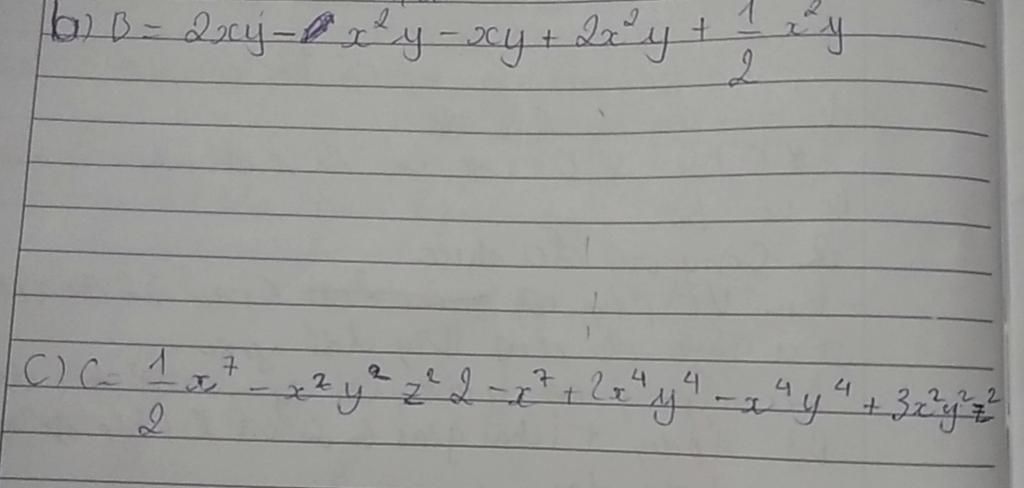 b) B = 2xy - x²y - xy + 2x²y + 1/2 x²y
C) C = 1/2 x⁷ - x²y²z² 2 - x⁷ + 2x⁴y⁴ - x⁴y⁴ + 3x²y²z²